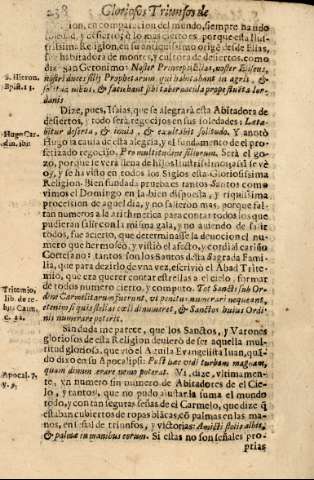 238 Gloriosos Triunfos de
en comparacion del mundo, siempre ha sido
y desierto: y lo mas cierto es porque esta Ilus-
trissima Religion, en su antiquissimo origẽ desde Elias,
fue habitadora de montes, y cultora de desiertos, como
dize San Geronimo: Noster Princeps Elias, noster Eliseus,
nostri duces filij Prophetarum qui habitabant in agris, &
solitudinibus, & faciebant sibi tabernacula prope fluenta Ior-
danis.
S. Hieron.
Epist. 13.
Dize, pues, Isaias, que se alegrarà esta Abitadora de
desiertos, y todo serà regocijos en sus soledades: Læta-
bitur deserta, & inuia, & exultabit solitudo. Y anotò
Hugo la causa de esta alegria, y el fundamento de el pro-
fetizado regocijo. Pro multitudine filiorum. Serà el go-
zo, porque se verà llena de hijos Ilustrissimos; assi le vè
oy, y se ha visto en todos los Siglos esta Gloriosissima
Religion. Bien fundada prueba es tantos Santos como
vimos el Domingo en la bien dispuesta, y riquissima
procession de aquel dia, y no salieron mas, porque fal-
tan numeros a la arithmetica para contar todos los que
pudieran salir con la misma gala, y no auiendo de salir
todos, fue acierto, que determinasse la deuocion el nu-
mero que hermoseò, y vistiò el afecto, y cordial cariño
Cortesano: tantos son los Santos desta Sagrada Fami-
lia, que para dezirlo de vna vez, escriviò el Abad Trite-
mio, que era querer contar estrellas a el cielo, formar
de todos numero cierto, y computo. Tot Sancti sub Or-
dine Carmelitarum fuerunt, vt penitus numerari nequeant,
etenim si quis stellas cœli dinumeret, & Sanctos huius Ordi-
nis numerare poterit.
Hugo Car-
din. ibi:
Tritemio,
lib. de re-
bus Carm.
c. 22.
Sin duda me parece, que los Sanctos, y Varones
gloriosos de esta Religion deuieró de ser aquella mul-
titud gloriosa, que viò el Aguila Evangelista Iuan, quã-
do dixo en su Apocalipsi: Post hæc vidi turbam magnam,
quam dinumerare nemo poterat. Vi, dize, vltimamen-
te, vn numero sin numero de Abitadores de el Cie-
lo, y tantos, que no pudo ajustar la suma el mundo
todo, y con tan seguras señas de el Carmelo, que dize q̃
estaban cubiertos de ropas blãcas, cõ palmas en las ma-
nos, en señal de triunfos, y victorias: Amicti stolis albis,
& palmæ in manibus eorum. Si estas no son señales pro-
prias
Apocal. 7.
v. 9.